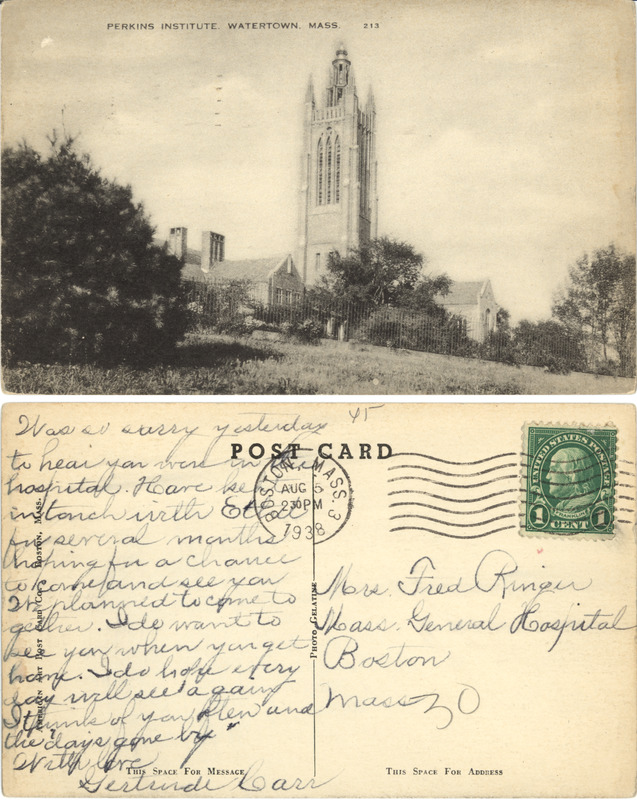 PERKINS INSTITUTE, WATERTOWN, MASS. 213
45
POST CARD
Was so sorry yesterday
to hear you were in the
hospital. Have kept
in touch with
for several months
hoping for a chance
to come and see you
We planned to come to
gether. I do want to
see you when you get
home. I do hope every
day will see a gain
I think of you often and
the days gone by"
With love
Gertrude Carr
BOSTON, MASS. 3
AUG 5
230PM
1938
UNITED STATES POSTAGE
FRANKLIN
1 CENT 1
Mrs. Fred Ringer
Mass. General Hospital
Boston
Mass
AMERICAN ART POST CARD CO., BOSTON, MASS.
PHOTO GELATINE
THIS SPACE FOR MESSAGE
THIS SPACE FOR ADDRESS